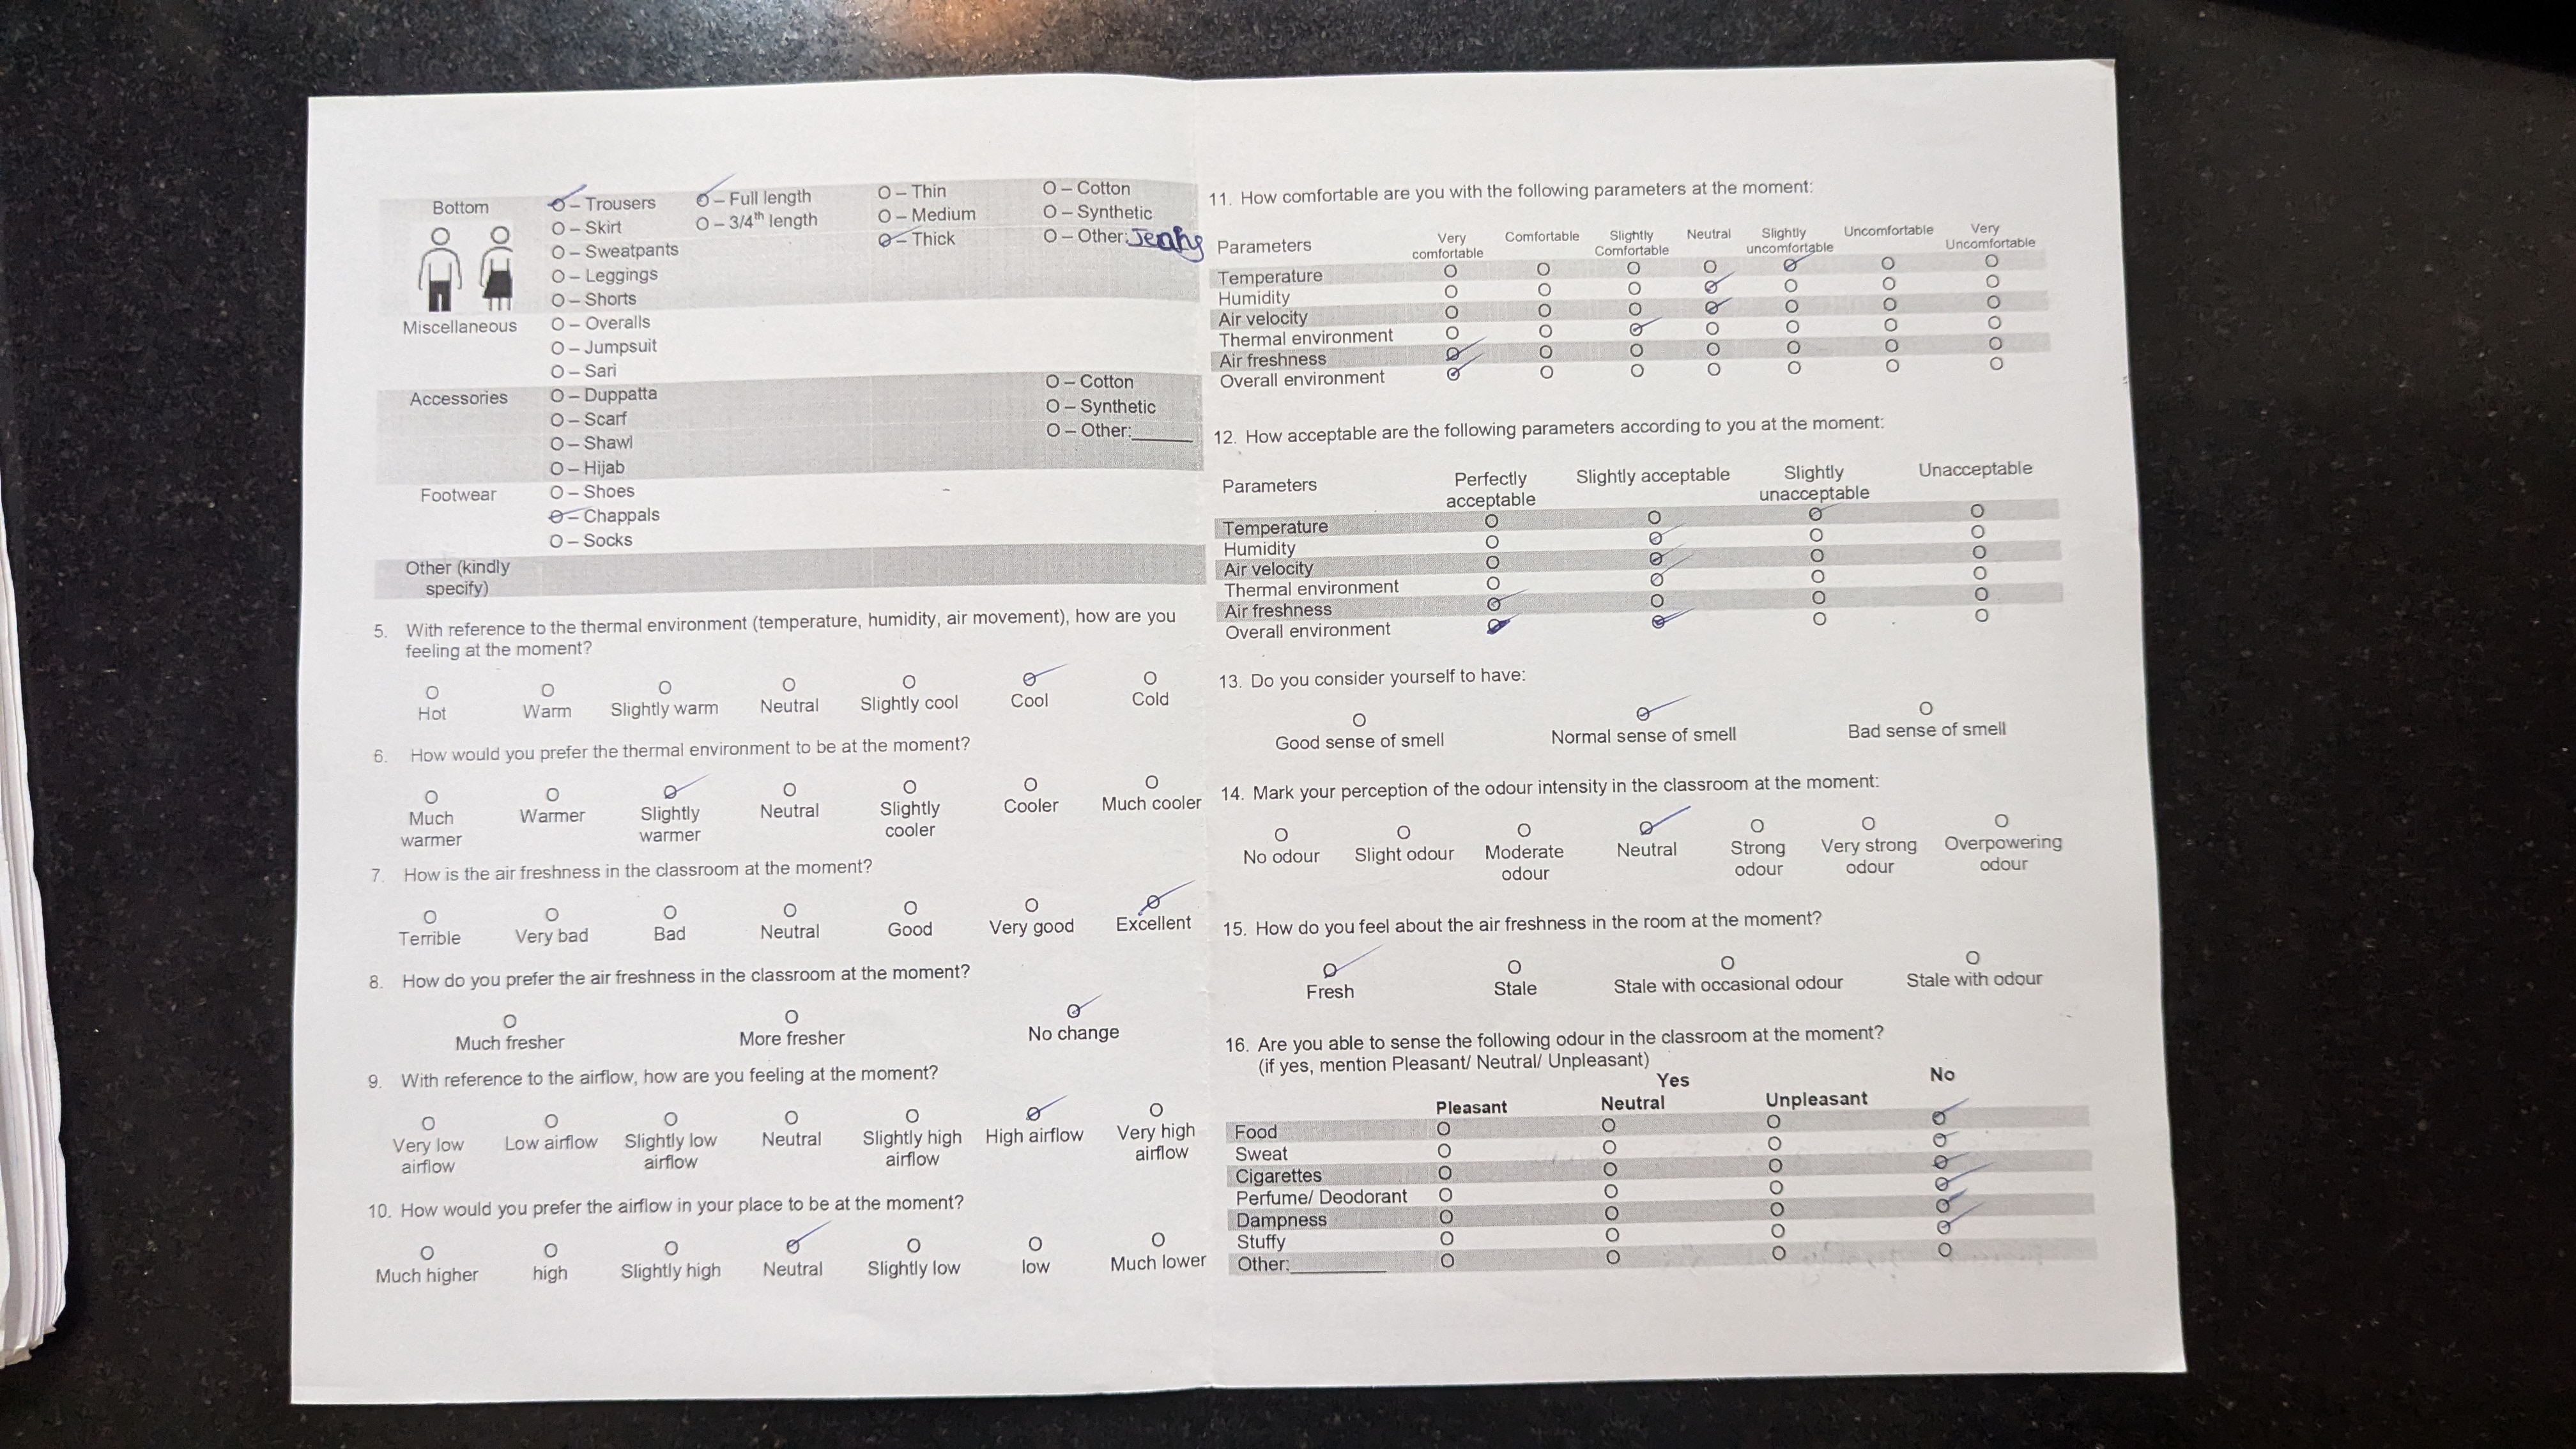 Bottom
O – Trousers
O – Skirt
O – Sweatpants
O – Leggings
O – Shorts
O – Full length
O – 3/4th length
O – Thin
O – Medium
O – Thick
O – Cotton
O – Synthetic
O – Other:
Miscellaneous
O – Overalls
O – Jumpsuit
O – Sari
Accessories
O – Duppatta
O – Scarf
O – Shawl
O – Hijab
O – Cotton
O – Synthetic
O – Other:______
Footwear
O – Shoes
O – Chappals
O – Socks
Other (kindly
specify)
5. With reference to the thermal environment (temperature, humidity, air movement), how are you
feeling at the moment?
O O O O O O O
Hot Warm Slightly warm Neutral Slightly cool Cool Cold
6. How would you prefer the thermal environment to be at the moment?
O O O O O O O
Much Warmer Slightly Neutral Slightly Cooler Much cooler
warmer warmer cooler
7. How is the air freshness in the classroom at the moment?
O O O O O O O
Terrible Very bad Bad Neutral Good Very good Excellent
8. How do you prefer the air freshness in the classroom at the moment?
O O O
Much fresher More fresher No change
9. With reference to the airflow, how are you feeling at the moment?
O O O O O O O
Very low Low airflow Slightly low Neutral Slightly high High airflow Very high
airflow airflow airflow airflow
10. How would you prefer the airflow in your place to be at the moment?
O O O O O O O
Much higher high Slightly high Neutral Slightly low low Much lower
11. How comfortable are you with the following parameters at the moment:
Parameters Very Comfortable Slightly Neutral Slightly Uncomfortable Very
comfortable Comfortable uncomfortable Uncomfortable
Temperature O O O O O O O
Humidity O O O O O O O
Air velocity O O O O O O O
Thermal environment O O O O O O O
Air freshness O O O O O O O
Overall environment O O O O O O O
12. How acceptable are the following parameters according to you at the moment:
Parameters Perfectly Slightly acceptable Slightly Unacceptable
acceptable unacceptable
Temperature O O O O
Humidity O O O O
Air velocity O O O O
Thermal environment O O O O
Air freshness O O O O
Overall environment O O O O
13. Do you consider yourself to have:
O O O
Good sense of smell Normal sense of smell Bad sense of smell
14. Mark your perception of the odour intensity in the classroom at the moment:
O O O O O O O
No odour Slight odour Moderate Neutral Strong Very strong Overpowering
odour odour odour odour
15. How do you feel about the air freshness in the room at the moment?
O O O O
Fresh Stale Stale with occasional odour Stale with odour
16. Are you able to sense the following odour in the classroom at the moment?
(if yes, mention Pleasant/ Neutral/ Unpleasant)
Yes No
Pleasant Neutral Unpleasant
Food O O O O
Sweat O O O O
Cigarettes O O O O
Perfume/ Deodorant O O O O
Dampness O O O O
Stuffy O O O O
Other:__________ O O O O